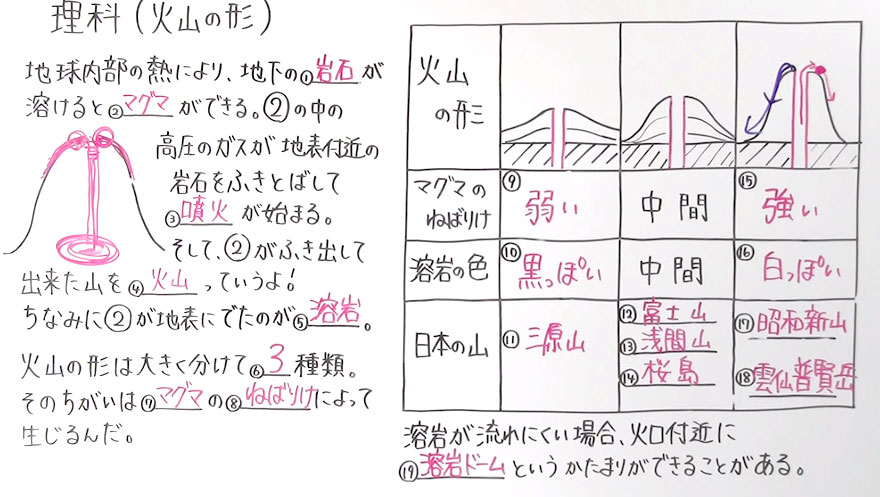 理科(火山の形)
地球内部の熱により、地下の①岩石が
溶けると②マグマができる。②の中の
高圧のガスが地表付近の
岩石をふきとばして
③噴火が始まる。
そして、②がふき出して
出来た山を④火山っていうよ!
ちなみに②が地表にでたのが⑤溶岩。
火山の形は大きく分けて⑥3種類。
そのちがいは⑦マグマの⑧ねばりけによって
生じるんだ。
火山
の形
マグマの
ねばりけ
⑨弱い
中間
⑮強い
溶岩の色
⑩黒っぽい
中間
⑯白っぽい
日本の山
⑪三原山
⑫富士山
⑬浅間山
⑭桜島
⑰昭和新山
⑱雲仙普賢岳
溶岩が流れにくい場合、火口付近に
⑲溶岩ドームというかたまりができることがある。